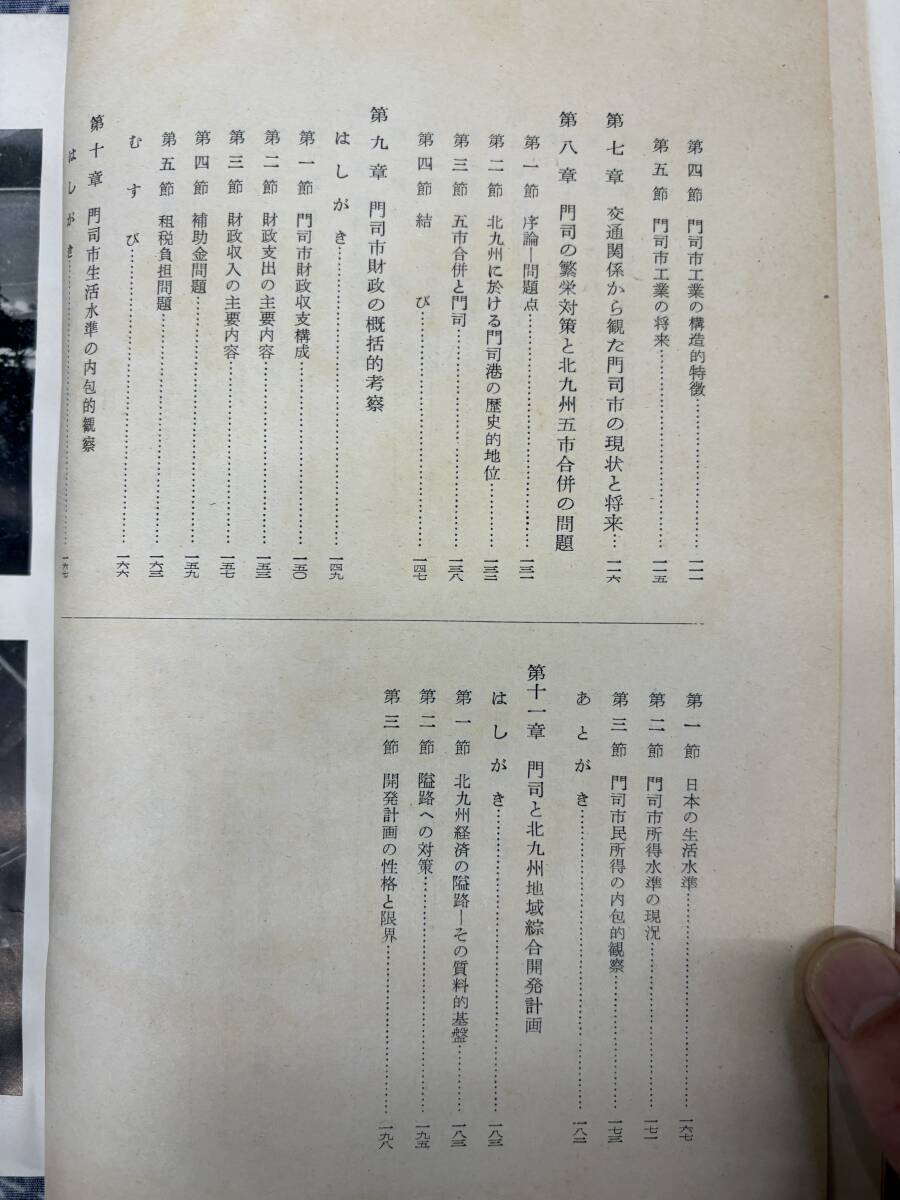 第四節 門司市工業の構造的特徴……一一一
第五節 門司市工業の将来……一一五
第七章 交通関係から観た門司市の現状と将来…一一六
第八章 門司の繁栄対策と北九州五市合併の問題
第一節 序論―問題点……一三一
第二節 北九州に於ける門司港の歴史的地位……一三二
第三節 五市合併と門司……一三八
第四節 結び……一四七
第九章 門司市財政の概括的考察
はしがき……一四九
第一節 門司市財政収支構成……一五〇
第二節 財政支出の主要内容……一五三
第三節 財政収入の主要内容……一五七
第四節 補助金問題……一五九
第五節 租税負担問題……一六三
むすび……一六六
第十章 門司市生活水準の内包的観察
はしがき……一六七
第一節 日本の生活水準……一六七
第二節 門司市所得水準の現況……一七一
第三節 門司市民所得の内包的観察……一七三
あとがき……一八二
第十一章 門司と北九州地域綜合開発計画
はしがき……一八三
第一節 北九州経済の隘路―その質料的基盤……一八三
第二節 隘路への対策……一九五
第三節 開発計画の性格と限界……一九八